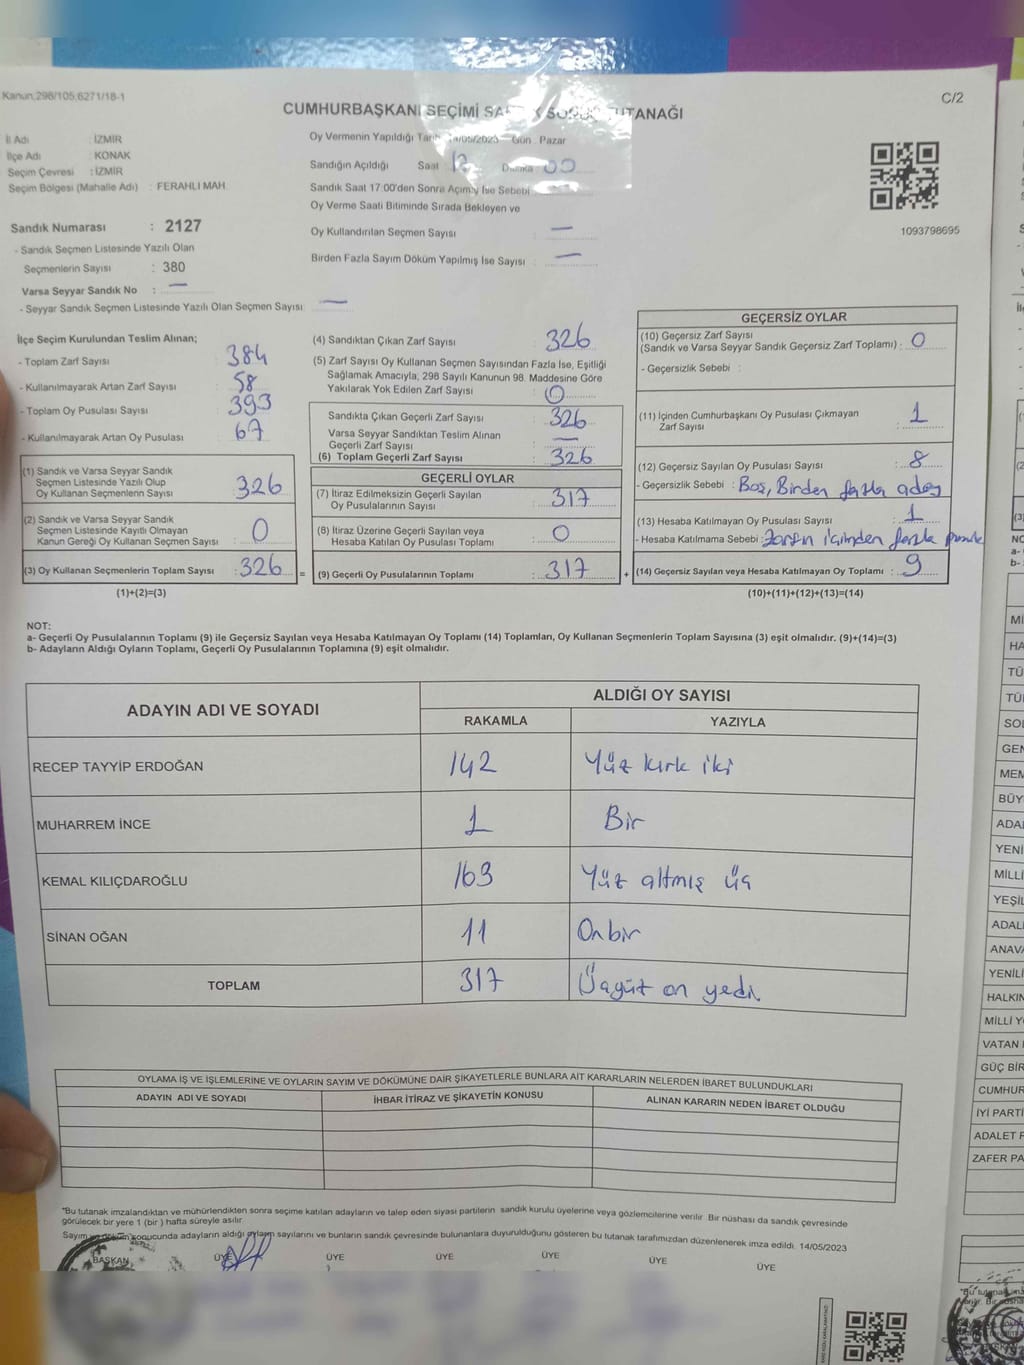 Kanun,298/105,6271/18-1
C/2
CUMHURBAŞKANI SEÇİMİ SA TUTANAĞI
İl Adı : İZMİR
İlçe Adı : KONAK
Seçim Çevresi : İZMİR
Seçim Bölgesi (Mahalle Adı) : FERAHLI MAH.
Oy Vermenin Yapıldığı Tarih 14/05/2023 Gün : Pazar
Sandığın Açıldığı Saat Dakika 00
Sandık Saat 17:00'den Sonra Açımış İse Sebebi
Oy Verme Saati Bitiminde Sırada Bekleyen ve
Oy Kullandırılan Seçmen Sayısı : —
Birden Fazla Sayım Döküm Yapılmış İse Sayısı : —
1093798695
Sandık Numarası : 2127
- Sandık Seçmen Listesinde Yazılı Olan
Seçmenlerin Sayısı : 380
Varsa Seyyar Sandık No : —
- Seyyar Sandık Seçmen Listesinde Yazılı Olan Seçmen Sayısı: —
İlçe Seçim Kurulundan Teslim Alınan;
- Toplam Zarf Sayısı : 384
- Kullanılmayarak Artan Zarf Sayısı : 58
- Toplam Oy Pusulası Sayısı : 393
- Kullanılmayarak Artan Oy Pusulası : 67
(1) Sandık ve Varsa Seyyar Sandık
Seçmen Listesinde Yazılı Olup
Oy Kullanan Seçmenlerin Sayısı : 326
(2) Sandık ve Varsa Seyyar Sandık
Seçmen Listesinde Kayıtlı Olmayan
Kanun Gereği Oy Kullanan Seçmen Sayısı : 0
(3) Oy Kullanan Seçmenlerin Toplam Sayısı : 326 =
(1)+(2)=(3)
(4) Sandıktan Çıkan Zarf Sayısı : 326
(5) Zarf Sayısı Oy Kullanan Seçmen Sayısından Fazla İse, Eşitliği
Sağlamak Amacıyla; 298 Sayılı Kanunun 98. Maddesine Göre
Yakılarak Yok Edilen Zarf Sayısı : 0
Sandıkta Çıkan Geçerli Zarf Sayısı : 326
Varsa Seyyar Sandıktan Teslim Alınan
Geçerli Zarf Sayısı : —
(6) Toplam Geçerli Zarf Sayısı : 326
GEÇERLİ OYLAR
(7) İtiraz Edilmeksizin Geçerli Sayılan
Oy Pusulalarının Sayısı : 317
(8) İtiraz Üzerine Geçerli Sayılan veya
Hesaba Katılan Oy Pusulası Toplamı : 0
(9) Geçerli Oy Pusulalarının Toplamı : 317 +
GEÇERSİZ OYLAR
(10) Geçersiz Zarf Sayısı
(Sandık ve Varsa Seyyar Sandık Geçersiz Zarf Toplamı) : 0
- Geçersizlik Sebebi :
(11) İçinden Cumhurbaşkanı Oy Pusulası Çıkmayan
Zarf Sayısı : 1
(12) Geçersiz Sayılan Oy Pusulası Sayısı : 8
- Geçersizlik Sebebi : Boş, Birden fazla aday
(13) Hesaba Katılmayan Oy Pusulası Sayısı : 1
- Hesaba Katılmama Sebebi : Zarfın içinden fazla pusula
(14) Geçersiz Sayılan veya Hesaba Katılmayan Oy Toplamı : 9
(10)+(11)+(12)+(13)=(14)
NOT:
a- Geçerli Oy Pusulalarının Toplamı (9) ile Geçersiz Sayılan veya Hesaba Katılmayan Oy Toplamı (14) Toplamları, Oy Kullanan Seçmenlerin Toplam Sayısına (3) eşit olmalıdır. (9)+(14)=(3)
b- Adayların Aldığı Oyların Toplamı, Geçerli Oy Pusulalarının Toplamına (9) eşit olmalıdır.
ADAYIN ADI VE SOYADI
ALDIĞI OY SAYISI
RAKAMLA YAZIYLA
RECEP TAYYİP ERDOĞAN 142 Yüz kırk iki
MUHARREM İNCE 1 Bir
KEMAL KILIÇDAROĞLU 163 Yüz altmış üç
SİNAN OĞAN 11 Onbir
TOPLAM 317 Üçyüz on yedi
OYLAMA İŞ VE İŞLEMLERİNE VE OYLARIN SAYIM VE DÖKÜMÜNE DAİR ŞİKAYETLERLE BUNLARA AİT KARARLARIN NELERDEN İBARET BULUNDUKLARI
ADAYIN ADI VE SOYADI İHBAR İTİRAZ VE ŞİKAYETİN KONUSU ALINAN KARARIN NEDEN İBARET OLDUĞU
*Bu tutanak imzalandıktan ve mühürlendikten sonra seçime katılan adayların ve talep eden siyasi partilerin sandık kurulu üyelerine veya gözlemcilerine verilir. Bir nüshası da sandık çevresinde
görülecek bir yere 1 (bir) hafta süreyle asılır.
Sayım ve döküm sonucunda adayların aldığı oyların sayılarını ve bunların sandık çevresinde bulunanlara duyurulduğunu gösteren bu tutanak tarafımızdan düzenlenerek imza edildi. 14/05/2023
BAŞKAN ÜYE ÜYE ÜYE ÜYE ÜYE ÜYE
Mİ
HA
TÜ
TÜ
SOL
GEN
MEM
BÜY
ADA
YENİ
MİLLİ
YEŞİL
ADAL
ANAV
YENİLİ
HALKIN
MİLLİ Y
VATAN
GÜÇ BİR
CUMHUR
İYİ PARTİ
ADALET
ZAFER PA